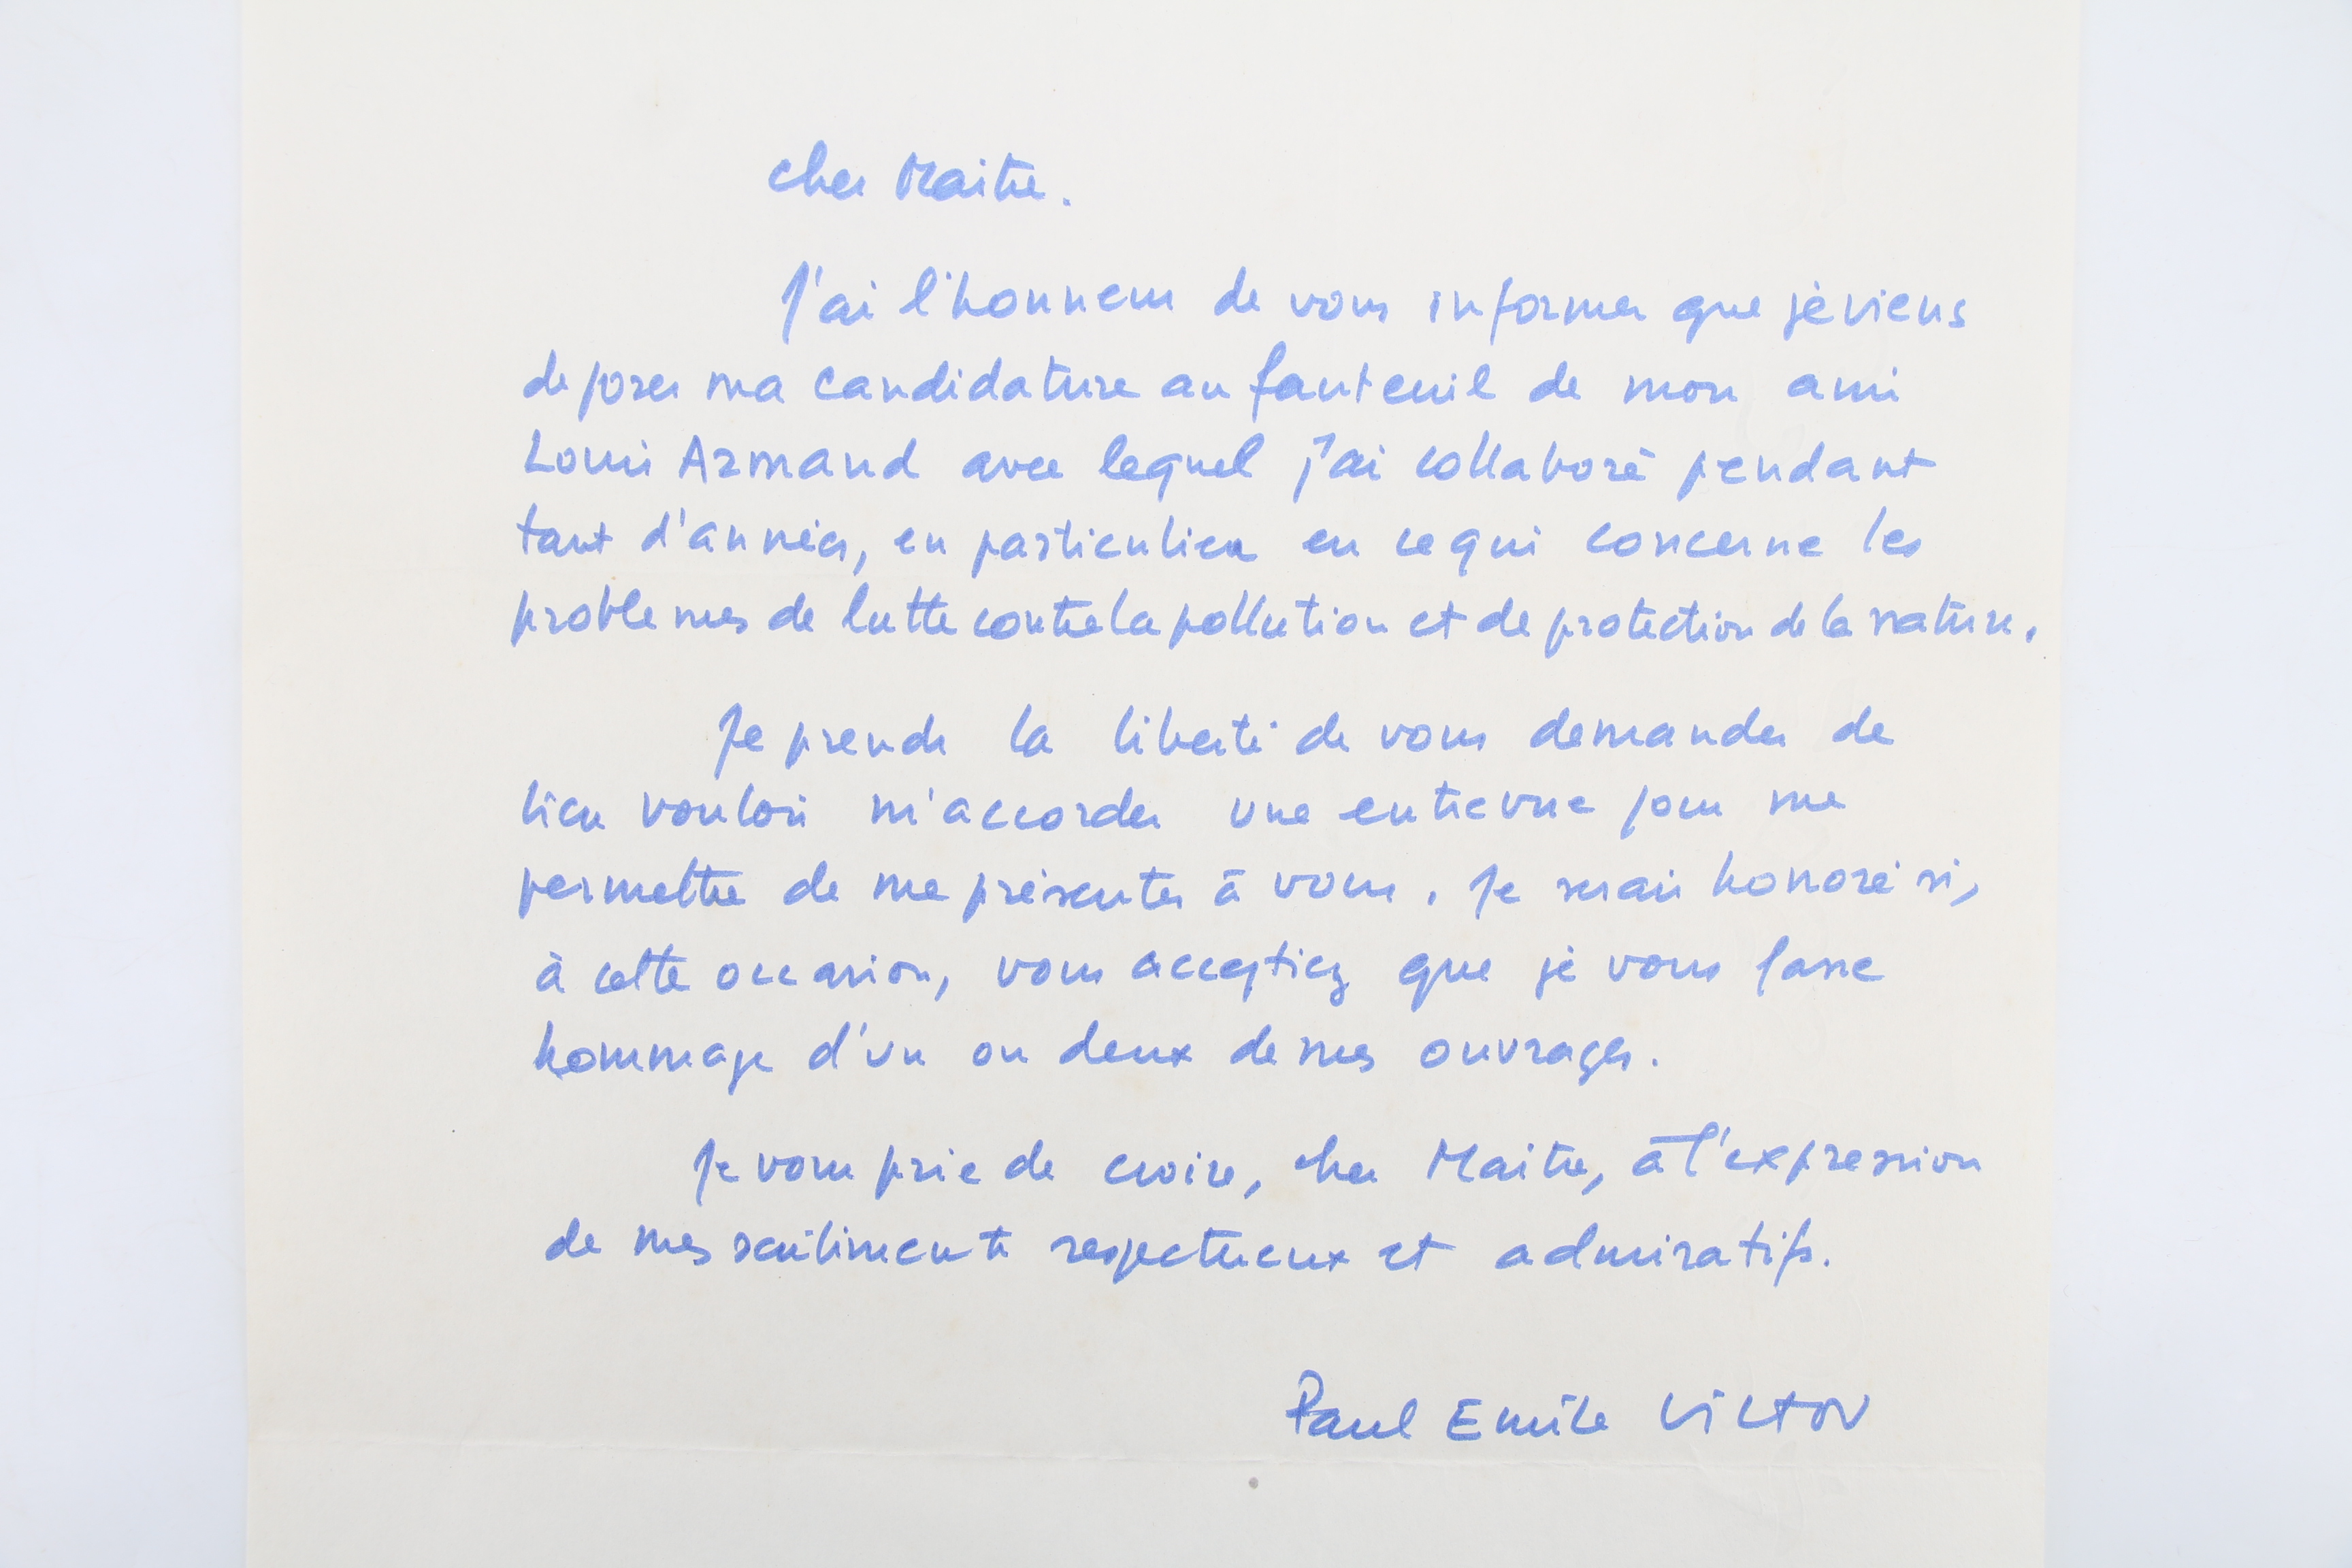 Cher Maitre.
J'ai l'honneur de vous informer que je viens
de poser ma candidature au fauteuil de mon ami
Louis Armand avec lequel j'ai collaboré pendant
tant d'années, en particulier en ce qui concerne les
problemes de lutte contre la pollution et de protection de la nature.
Je prends la liberté de vous demander de
bien vouloir m'accorder une entrevue pour me
permettre de me présenter à vous. Je serais honoré si,
à cette occasion, vous acceptiez que je vous fasse
hommage d'un ou deux de mes ouvrages.
Je vous prie de croire, cher Maitre, à l'expression
de mes sentiments respectueux et admiratifs.
Paul Emile Victor